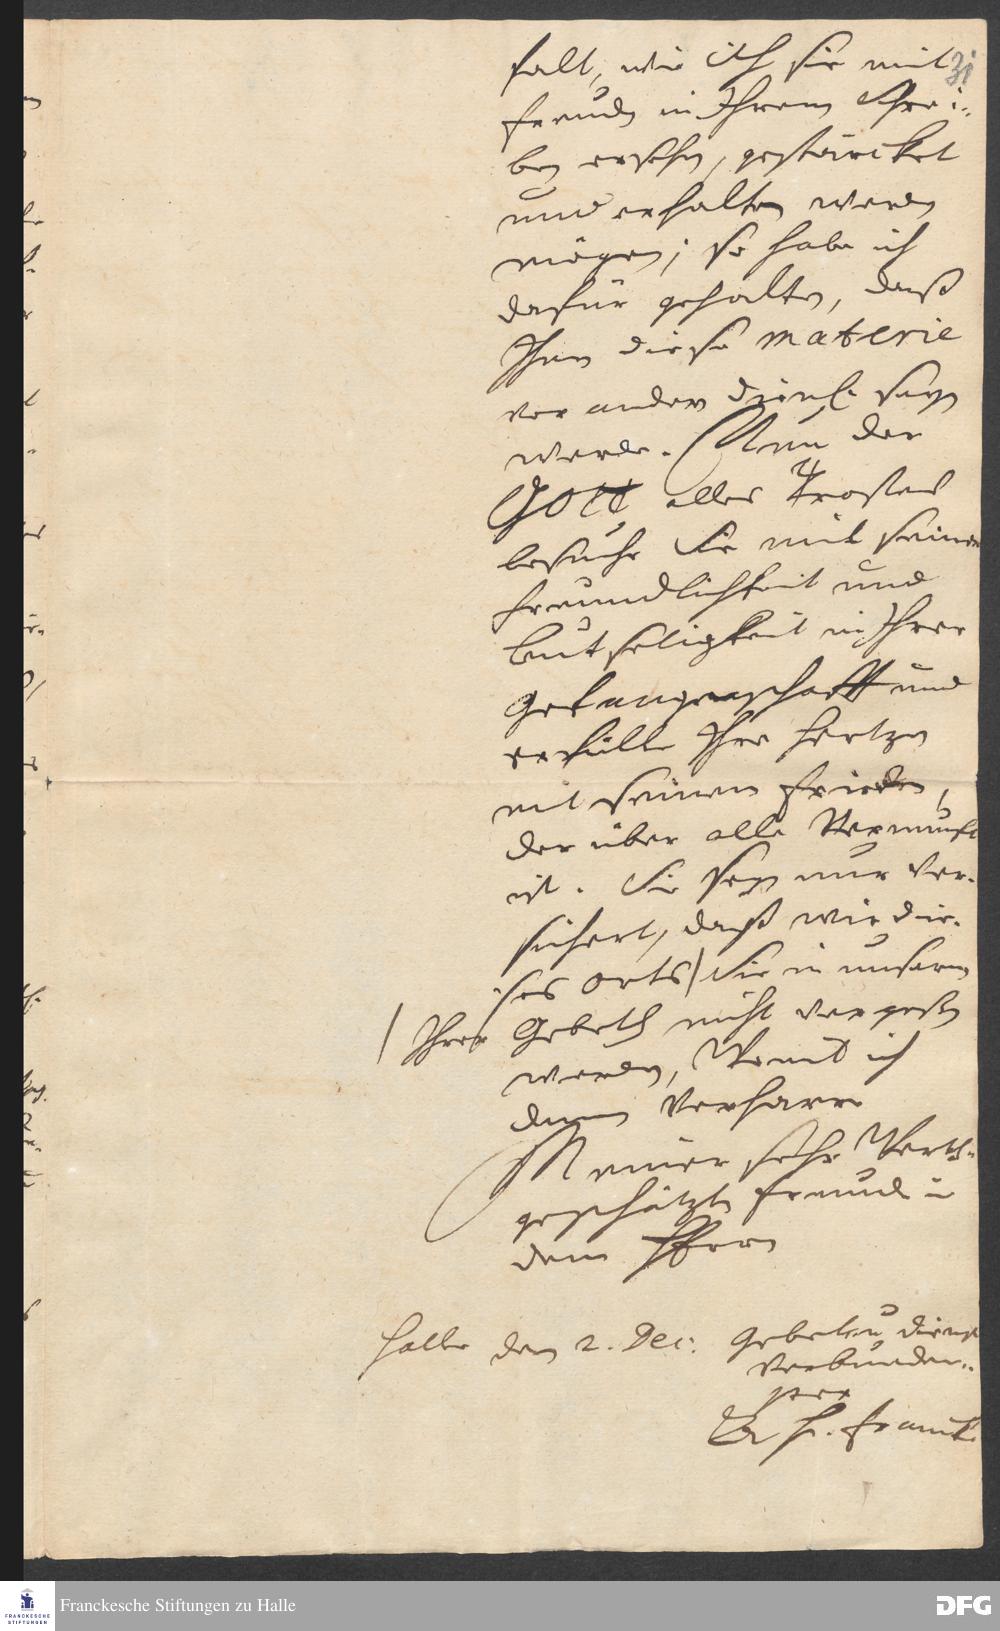 31
falt, wie ich sie mit
freuden in Ihrem Schrei-
ben ersehen, gestärcket
und erhalten werden
mögen; so habe ich
dafür gehalten, daß
Ihnen diese materie
vor andern dienl. seyn
werde. Nun der
GOTT alles Trostes
besuche Sie mit seiner
freundlichkeit und
Leutseligkeit in Ihrer
gefangenschafft und
erfülle Ihre Hertzen
mit seinem frieden,
der über alle Vernunft
ist. Sie seyn nur ver-
sichert, daß wir die-
ses orts / Sie in unserm
/ Ihrer Gebeth nicht vergeßen
werden, Womit ich
denn verharre
Meiner sehr Werth-
geschätzten freunde in
dem HErrn
Halle den 2. Dec: Gebet u. dienst
verbunden-
ster
A H. Franck.
Franckesche Stiftungen zu Halle
FRANCKESCHE
STIFTUNGEN
DFG